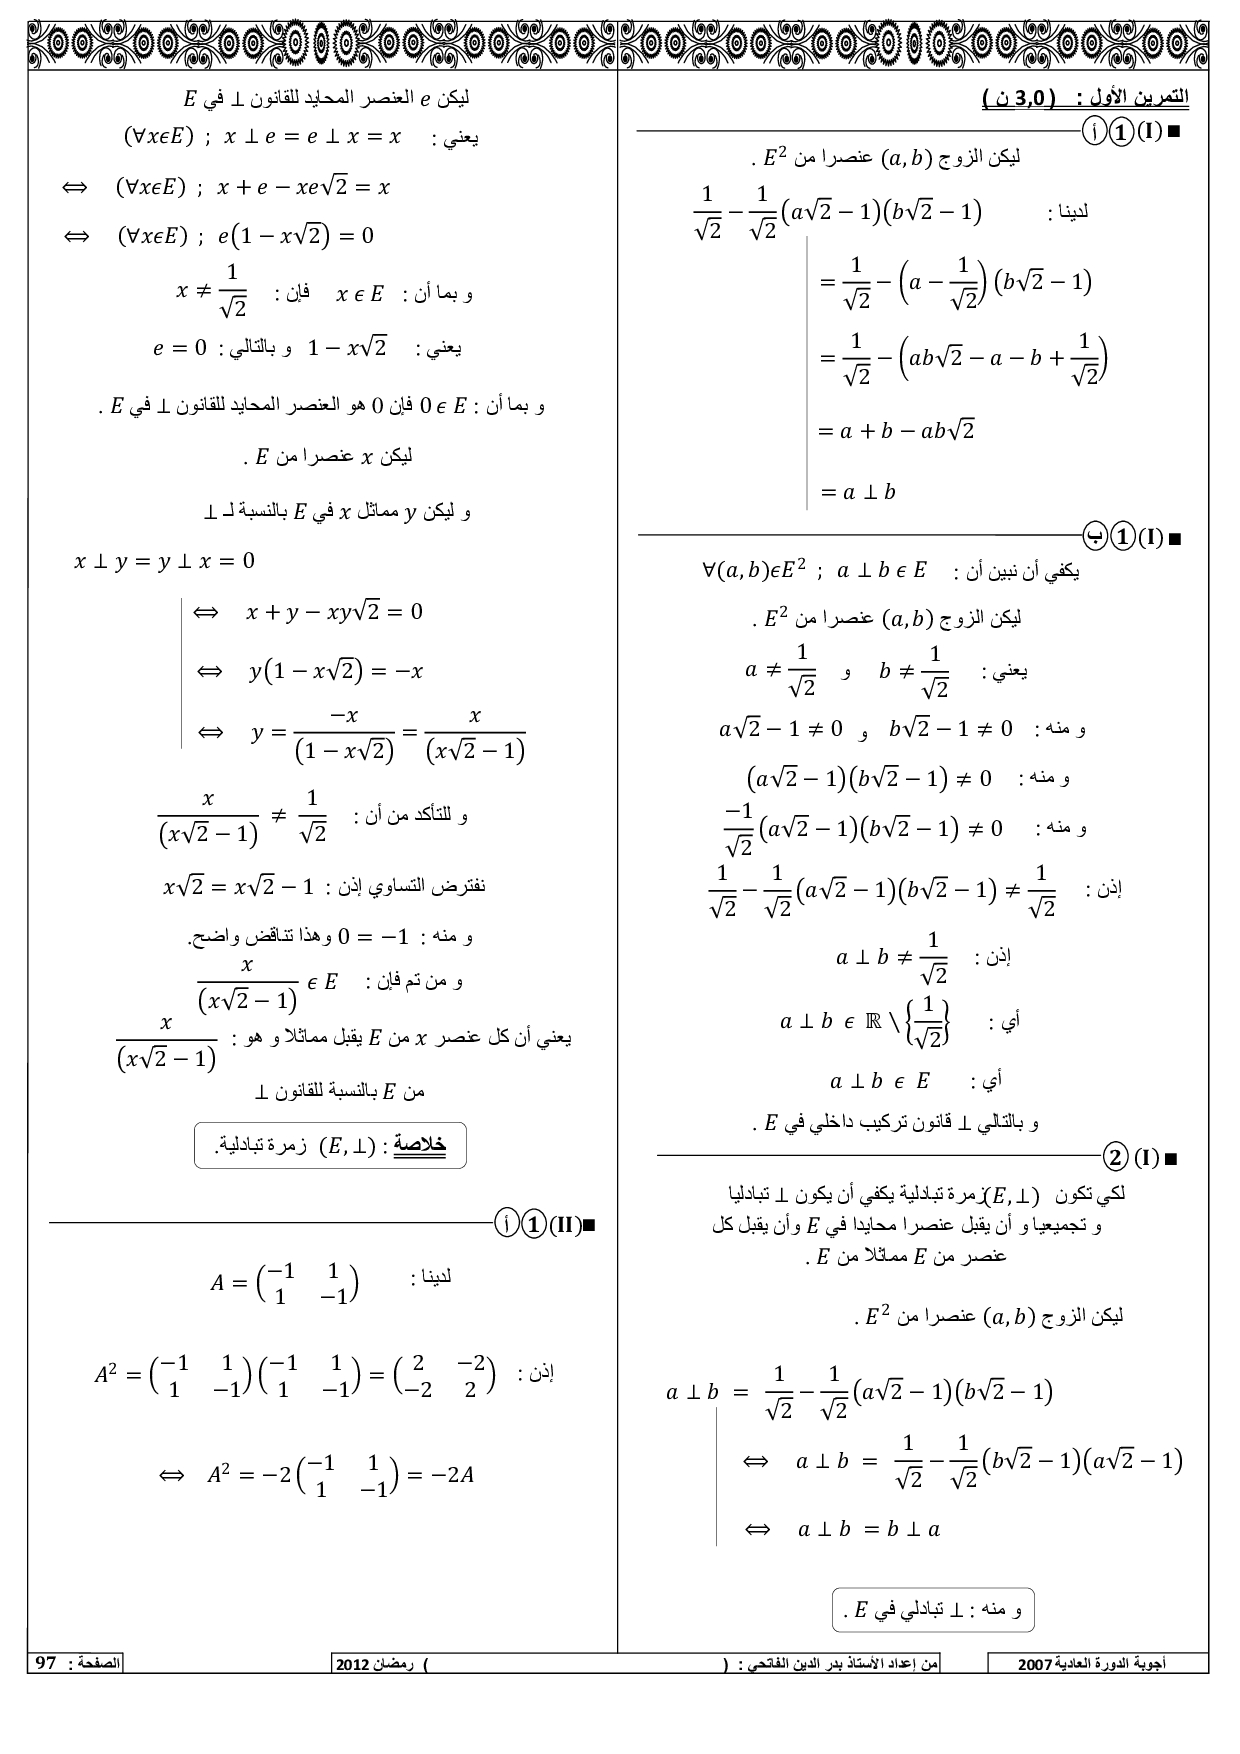 التمرين الأول : ( 3,0 ن )
■ (I) 1 أ
ليكن الزوج (a, b) عنصرا من E² .
لدينا : 1/√2 − 1/√2 (a√2 − 1)(b√2 − 1)
= 1/√2 − (a − 1/√2)(b√2 − 1)
= 1/√2 − (ab√2 − a − b + 1/√2)
= a + b − ab√2
= a ⊥ b
■ (I) 1 ب
يكفي أن نبين أن : ∀(a, b)ϵE² ; a ⊥ b ϵ E
ليكن الزوج (a, b) عنصرا من E² .
يعني : b ≠ 1/√2 و a ≠ 1/√2
و منه : b√2 − 1 ≠ 0 و a√2 − 1 ≠ 0
و منه : (a√2 − 1)(b√2 − 1) ≠ 0
و منه : −1/√2 (a√2 − 1)(b√2 − 1) ≠ 0
إذن : 1/√2 − 1/√2 (a√2 − 1)(b√2 − 1) ≠ 1/√2
إذن : a ⊥ b ≠ 1/√2
أي : a ⊥ b ϵ ℝ ∖ {1/√2}
أي : a ⊥ b ϵ E
و بالتالي ⊥ قانون تركيب داخلي في E .
■ (I) 2
لكي تكون (E, ⊥) زمرة تبادلية يكفي أن يكون ⊥ تبادليا
و تجميعيا و أن يقبل عنصرا محايدا في E وأن يقبل كل
عنصر من E مماثلا من E .
ليكن الزوج (a, b) عنصرا من E² .
a ⊥ b = 1/√2 − 1/√2 (a√2 − 1)(b√2 − 1)
⇔ a ⊥ b = 1/√2 − 1/√2 (b√2 − 1)(a√2 − 1)
⇔ a ⊥ b = b ⊥ a
و منه : ⊥ تبادلي في E .
ليكن e العنصر المحايد للقانون ⊥ في E
يعني : (∀xϵE) ; x ⊥ e = e ⊥ x = x
⇔ (∀xϵE) ; x + e − xe√2 = x
⇔ (∀xϵE) ; e(1 − x√2) = 0
و بما أن : x ϵ E فإن : x ≠ 1/√2
يعني : 1 − x√2 و بالتالي : e = 0
و بما أن : 0 ϵ E فإن 0 هو العنصر المحايد للقانون ⊥ في E .
ليكن x عنصرا من E .
و ليكن y مماثل x في E بالنسبة لـ ⊥
x ⊥ y = y ⊥ x = 0
⇔ x + y − xy√2 = 0
⇔ y(1 − x√2) = −x
⇔ y = −x/(1 − x√2) = x/(x√2 − 1)
و للتأكد من أن : x/(x√2 − 1) ≠ 1/√2
نفترض التساوي إذن : x√2 = x√2 − 1
و منه : 0 = −1 وهذا تناقض واضح.
و من تم فإن : x/(x√2 − 1) ϵ E
يعني أن كل عنصر x من E يقبل مماثلا و هو : x/(x√2 − 1)
من E بالنسبة للقانون ⊥
خلاصة : (E, ⊥) زمرة تبادلية.
■(II) 1 أ
لدينا : A = (−1 1 ; 1 −1)
إذن : A² = (−1 1 ; 1 −1)(−1 1 ; 1 −1) = (2 −2 ; −2 2)
⇔ A² = −2 (−1 1 ; 1 −1) = −2A
أجوبة الدورة العادية 2007 من إعداد الأستاذ بدر الدين الفاتحي : ( ) رمضان 2012 الصفحة : 97